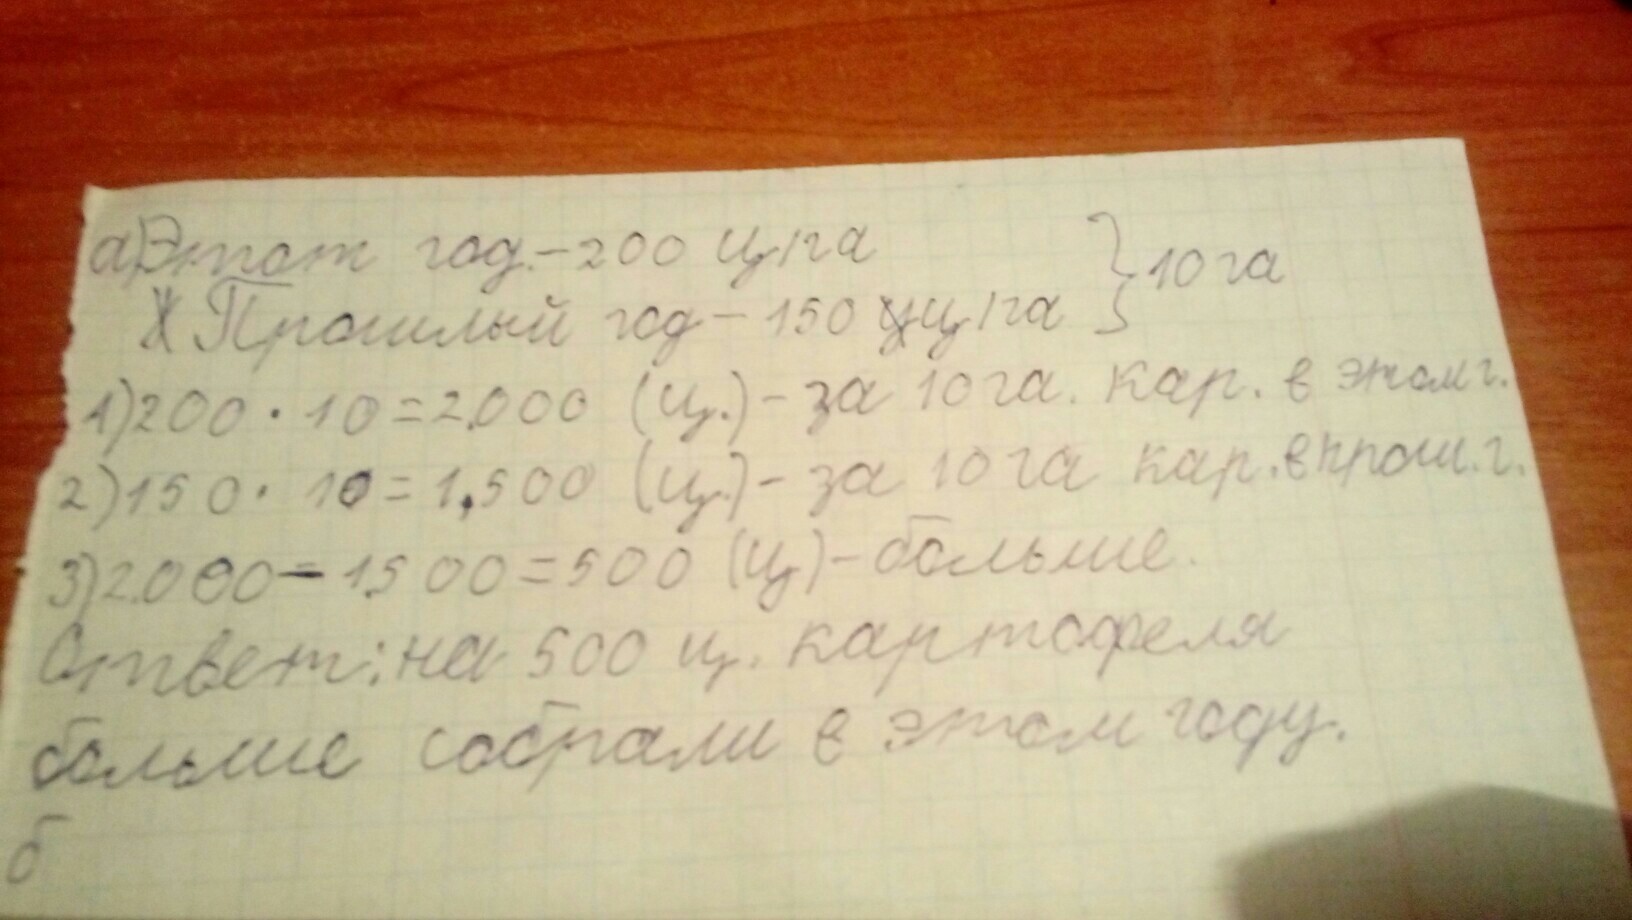 а) Этот год. – 200 ц/га } 10 га
Прошлый год – 150 ц/га
1) 200 · 10 = 2.000 (ц.) – за 10 га. кар. в этом г.
2) 150 · 10 = 1.500 (ц.) – за 10 га кар. в прош. г.
3) 2.000 – 1500 = 500 (ц) – больше.
Ответ: на 500 ц. картофеля
больше собрали в этом году.
б